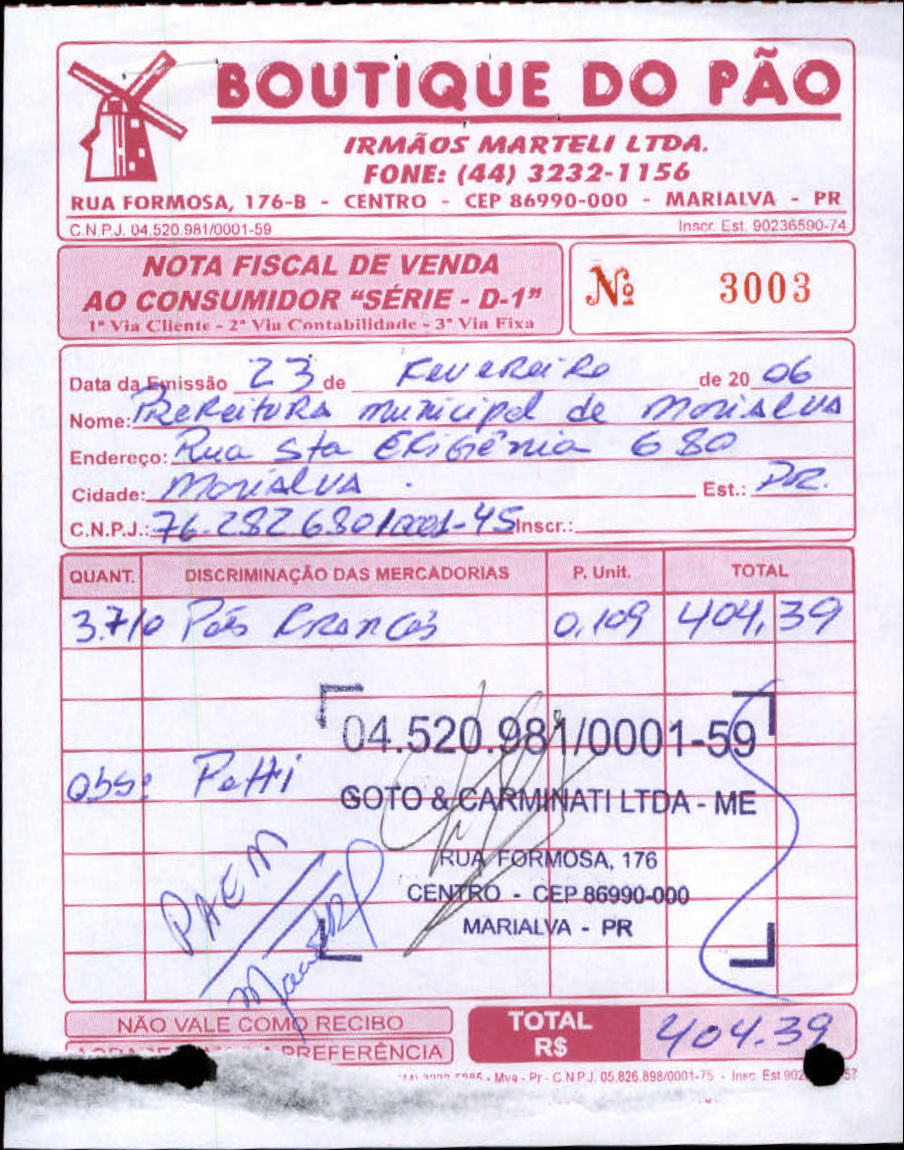 BOUTIQUE DO PÃO
IRMÃOS MARTELI LTDA.
FONE: (44) 3232-1156
RUA FORMOSA, 176-B - CENTRO - CEP 86990-000 - MARIALVA - PR
C.N.P.J. 04.520.981/0001-59 Inscr. Est. 90236590-74
NOTA FISCAL DE VENDA
AO CONSUMIDOR "SÉRIE - D-1"
1ª Via Cliente - 2ª Via Contabilidade - 3ª Via Fixa
Nº 3003
Data da Emissão 23 de Fevereiro de 20 06
Nome: Prefeitura municipal de Marialva
Endereço: Rua Sta Efigênia 680
Cidade: Marialva Est.: PR.
C.N.P.J.: 76.282680/0001-45 Inscr.:
QUANT. DISCRIMINAÇÃO DAS MERCADORIAS P. Unit. TOTAL
3.710 Pães Francês 0,109 404,39
04.520.981/0001-59
Obs: Petti
GOTO & CARMINATI LTDA - ME
RUA FORMOSA, 176
CENTRO - CEP 86990-000
MARIALVA - PR
PAEM
NÃO VALE COMO RECIBO
PREFERÊNCIA
TOTAL
R$ 404.39
- Mva - Pr - C.N.P.J. 05.826.898/0001-75 - Insc. Est 902 57